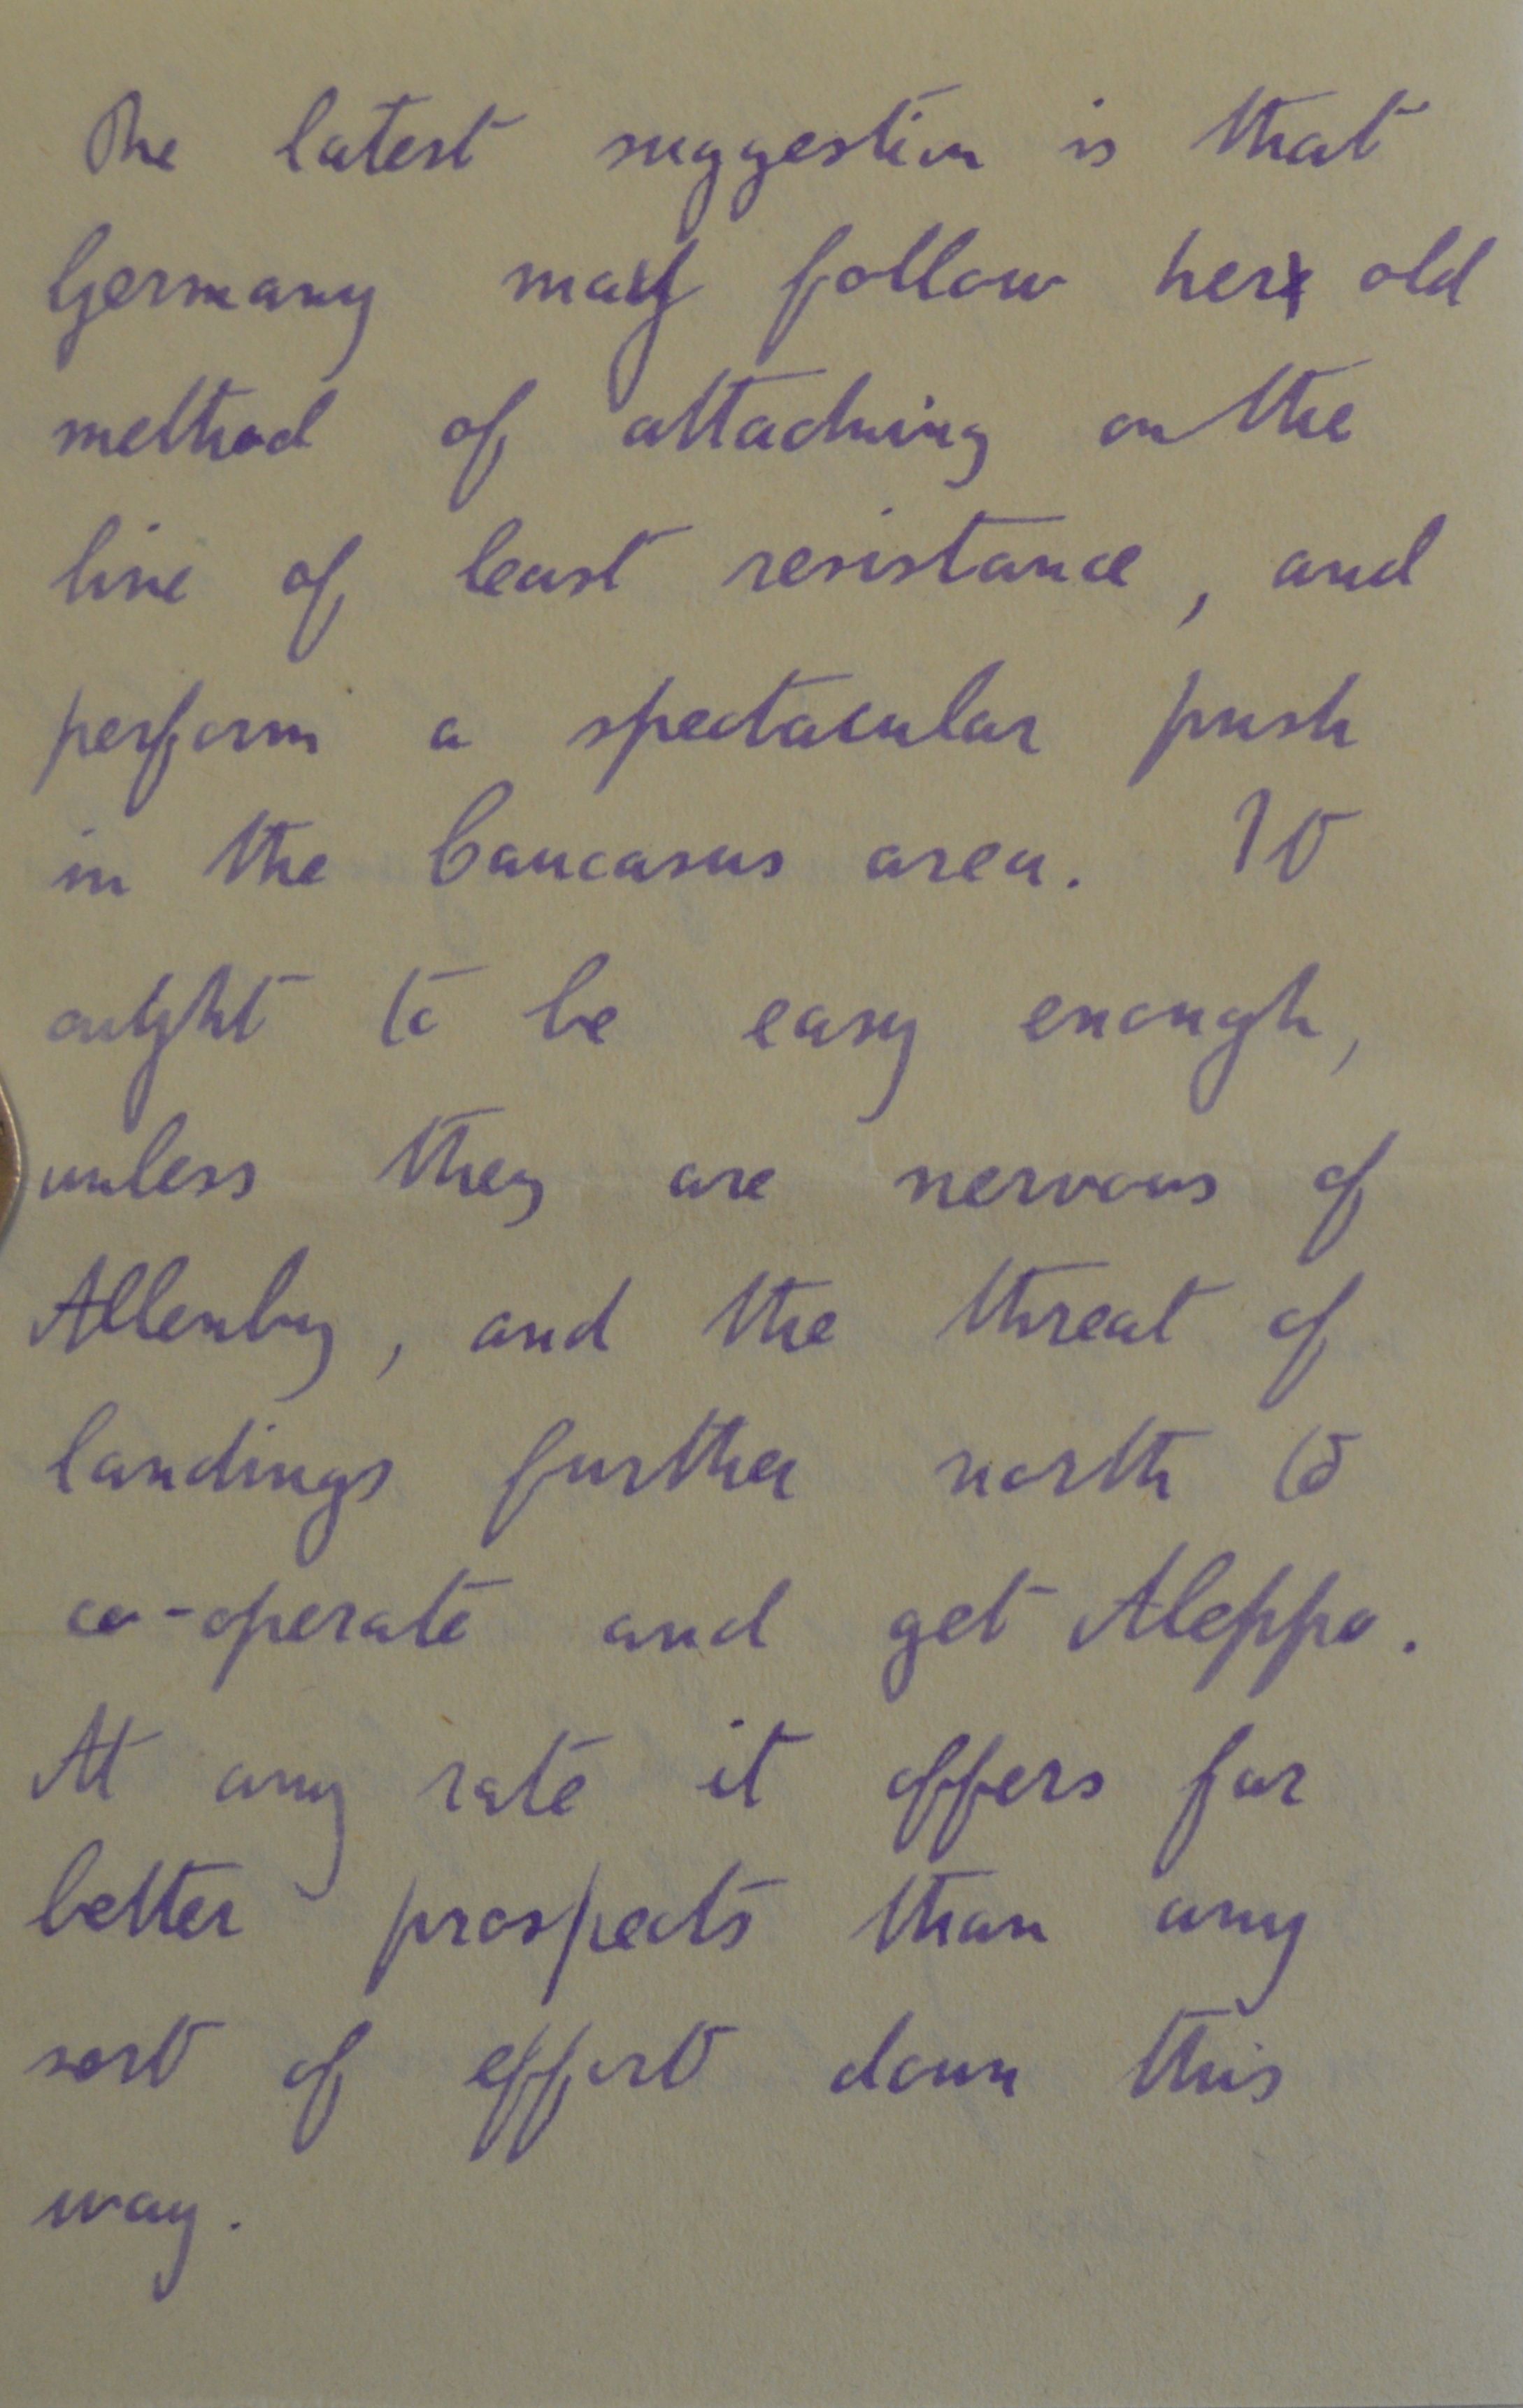 The latest suggestion is that
Germany may follow her old
method of attacking on the
line of least resistance, and
perform a spectacular push
in the Caucasus area. It
ought to be easy enough,
unless they are nervous of
Allenby, and the threat of
landings further north to
co-operate and get Aleppo.
At any rate it offers far
better prospects than any
sort of effort down this
way.